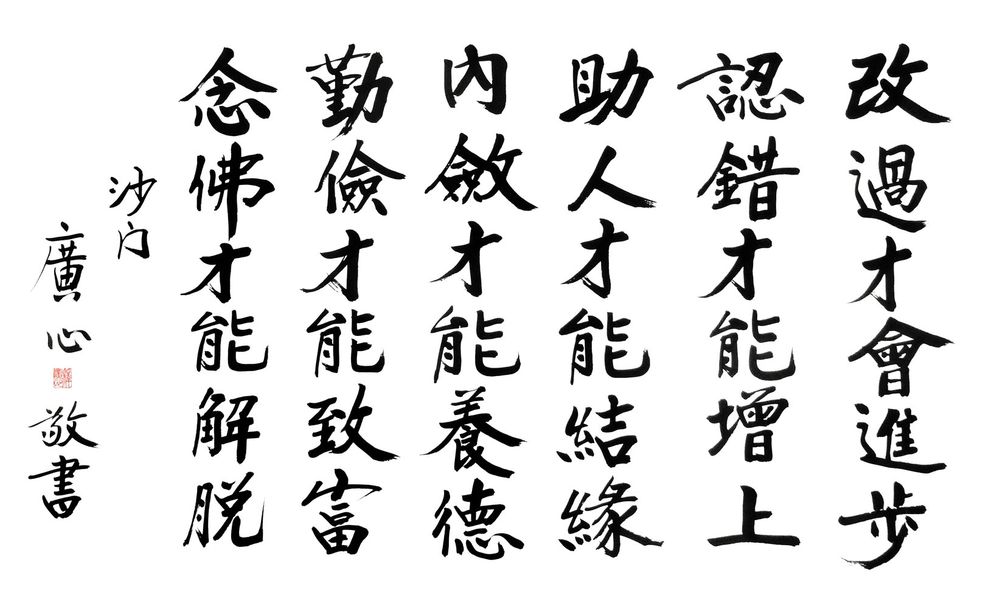 改過才會進步
認錯才能增上
助人才能結緣
內斂才能養德
勤儉才能致富
念佛才能解脫
沙门
廣心敬書